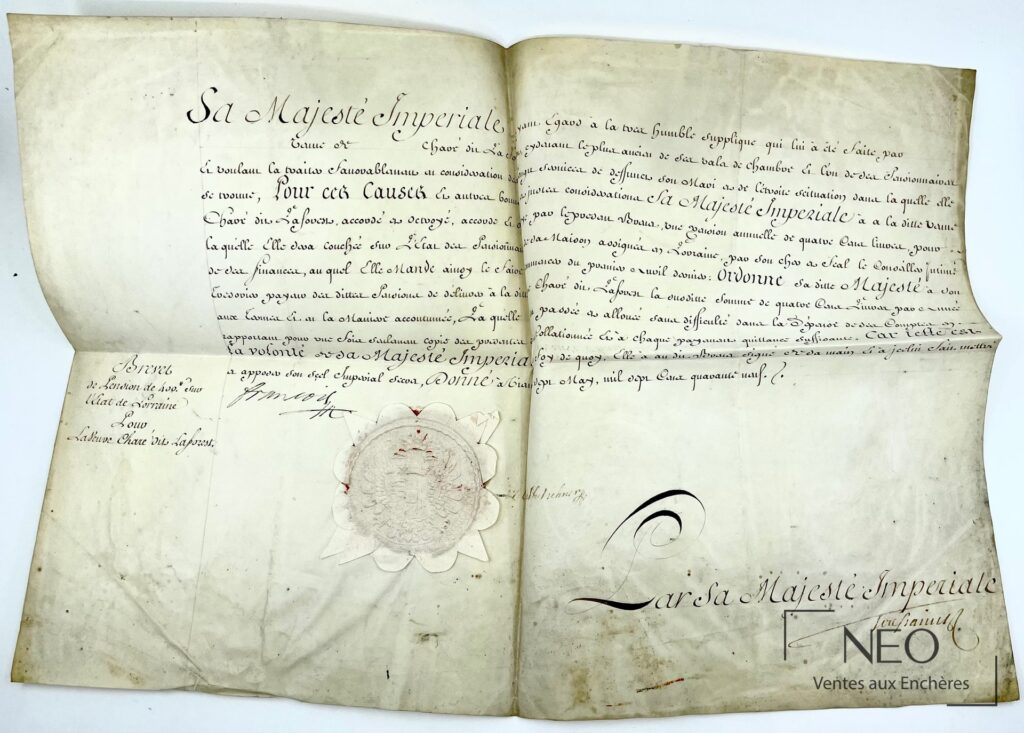 Sa Majesté Imperiale, ayant Egard à la très humble supplique qui lui à été faite, par
veuve de Charé dit La plus ancien de ses valets de chambre et l'un de ses Pensionnaires
Et voulant la traiter favorablement en consideration des services de deffunct son Mari et de l'étroite scituation dans la quelle elle
se trouve, Pour ces Causes et autres bonnes et justes considerations Sa Majesté Imperiale à a la ditte veuve
Charé dit Laforest, accordé et octroyé, accorde et par le present Brevet, une pension annuelle de quatre Cent livres, pour
la quelle Elle sera couchée sur l'Etat des Pensionnaires de sa Maison assignée en Lorraine, par son cher et feal le Conseiller Intime
de ses finances, au quel Elle Mande ainsy le faire du premier Avril dernier; Ordonne sa ditte Majesté à son
Tresorier payeur des dittes Pensions de delivrer à la ditte Charé dit Laforest la susditte somme de quatre Cent Livres par Année
aux termes et en la Maniere accoutumée, La quelle passée et allouée sans difficulté dans la Dépense de ses Comptes en
rapportant pour une fois seulement copie des presentes Collationnée et à chaque payement quittance suffisante. Car telle est
la volonté de sa Majesté Imperiale foy de quoy, Elle à au dit Brevet signé de sa main et à jcelui fait mettre
et apposer son scel Imperial secret, Donné à sept May, mil sept Cent quarante neuf.
françois
Brevet
de Pension de 400.# sur
l'Etat de Lorraine
Pour
La Veuve Charé dit Laforest.
Par Sa Majesté Imperiale
Toussaint
NEO
Ventes aux Enchères